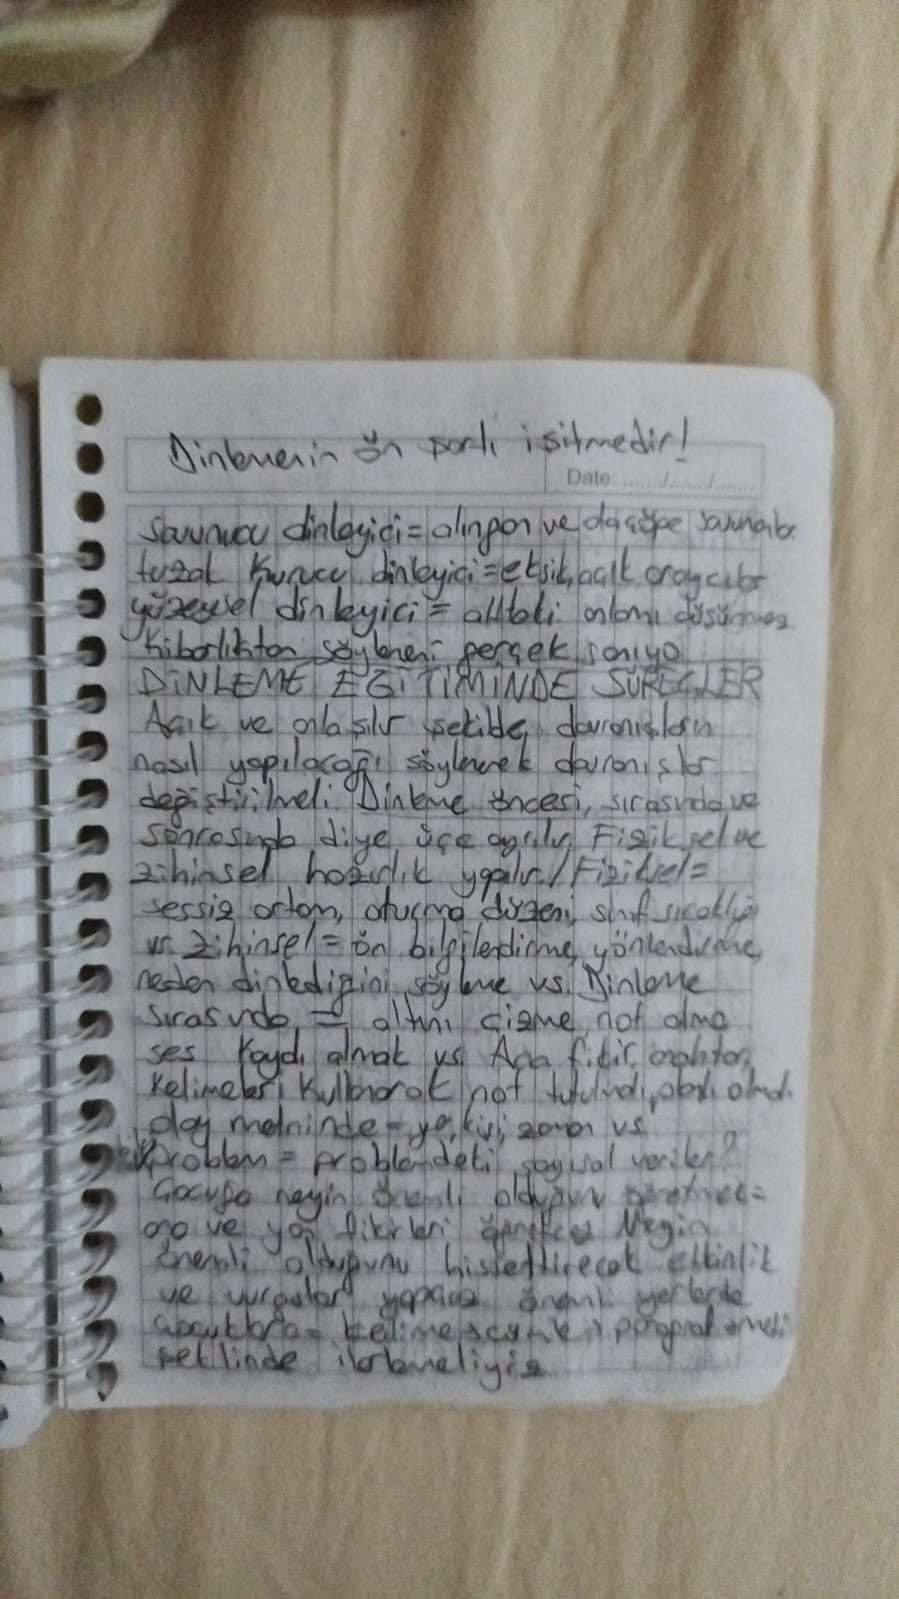 Dinlemenin ön şartı işitmedir!
Date: ...../...../.....
Savunucu dinleyici = alıngan ve savunucular
tuzak kurucu dinleyici = eksik, açık arayıcılar
yüzeysel dinleyici = alttaki anlamı düşünmez
Kibarlıktan söyleneni gerçek sanıyo
DİNLEME EĞİTİMİNDE SÜREÇLER
Açık ve anlaşılır şekilde davranışların
nasıl yapılacağı söylenerek davranışlar
değiştirilmeli. Dinleme öncesi, sırasında ve
sonrasında diye üçe ayrılır. Fiziksel ve
zihinsel hazırlık yapılır. / Fiziksel =
sessiz ortam, oturma düzeni, sınıf sıcaklığı
vs. Zihinsel = ön bilgilendirme, yönlendirme,
neden dinlediğini söyleme vs. Dinleme
sırasında = altını çizme, not alma
ses kaydı almak vs. Ana fikir, anahtar
kelimeleri kullanarak not tutulmalı,
olay metninde = yer, kişi, zaman vs.
problem = problemdeki sayısal veriler?
Çocuğa neyin önemli olduğunu öğretmek =
ana ve yan fikirleri Neyin
önemli olduğunu hissettirecek etkinlik
ve vurgular yapacaz önemli yerlerde
çocuklara = kelime paragraf
şeklinde ilerlemeliyiz